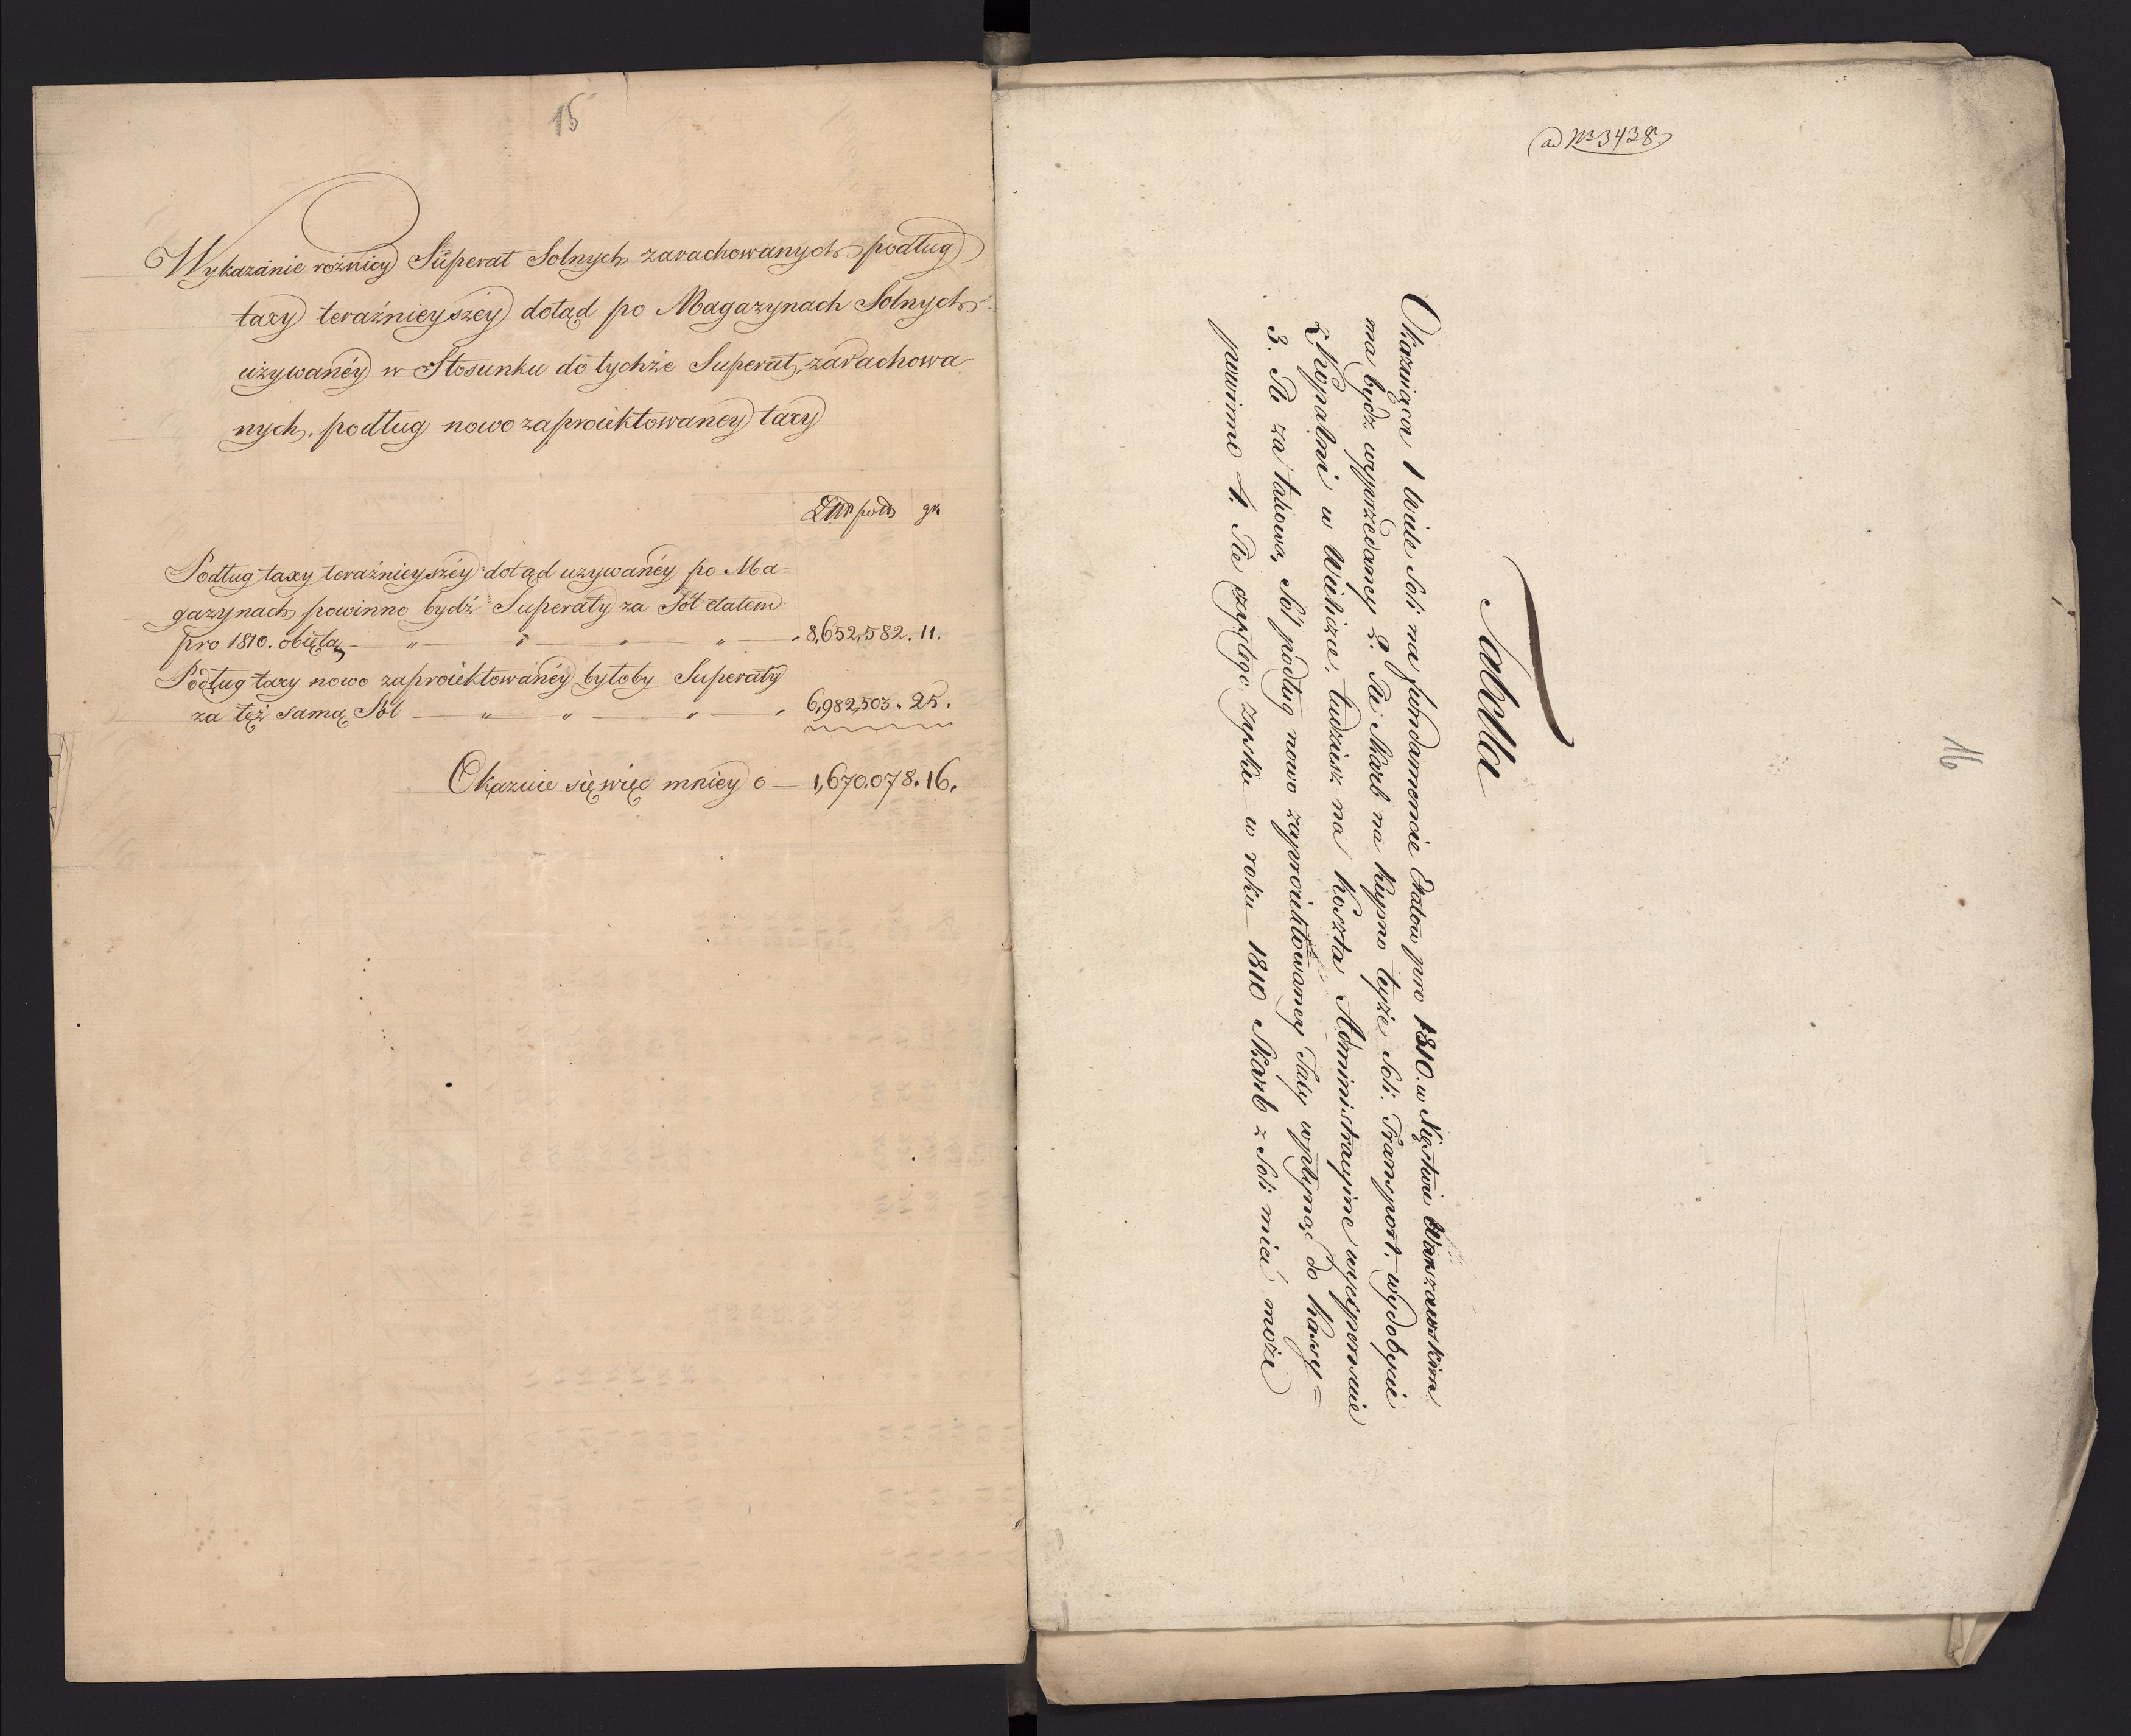 15
Wykazanie rożnicy Superat Solnych zarachowanych podług
taxy teraźnieyszéy dotąd po Magazynach Solnych
używanéy w Stosunku do tychże Superat, zarachowa-
nych, podług nowo zaproiektowaney taxy
Złł pols gr
Podług taxy teraźnieyszéy dotąd używanéy po Ma=
gazynach powinno bydź Superaty za Sól etatem
pro 1810. obiętą 8,652,582. 11.
Podług taxy nowo zaproiektowanéy byłoby Superaty
za tęż samą Sól 6,982,503. 25.
Okazuie się więc mniey o — 1,670.078. 16.
ad Nr 3438
16
Tabella
Okazuiąca 1 Wiele Soli na fundamencie Etatow pro 1810. w Xięstwie Warszawskim
ma bydz wyprzedaney 2. Ile Skarb na kupno teyże Soli. Transport, wydobycie
z Kopalni w Wieliczce, tudziesz na koszta Administracyine wyexpensuie
3. Ile za takową Sól podług nowo zaproiektowaney Taxy wpłynąć do kassy =
powinno 4. Ile czystego zysku w roku 1810 Skarb z Soli mieć może